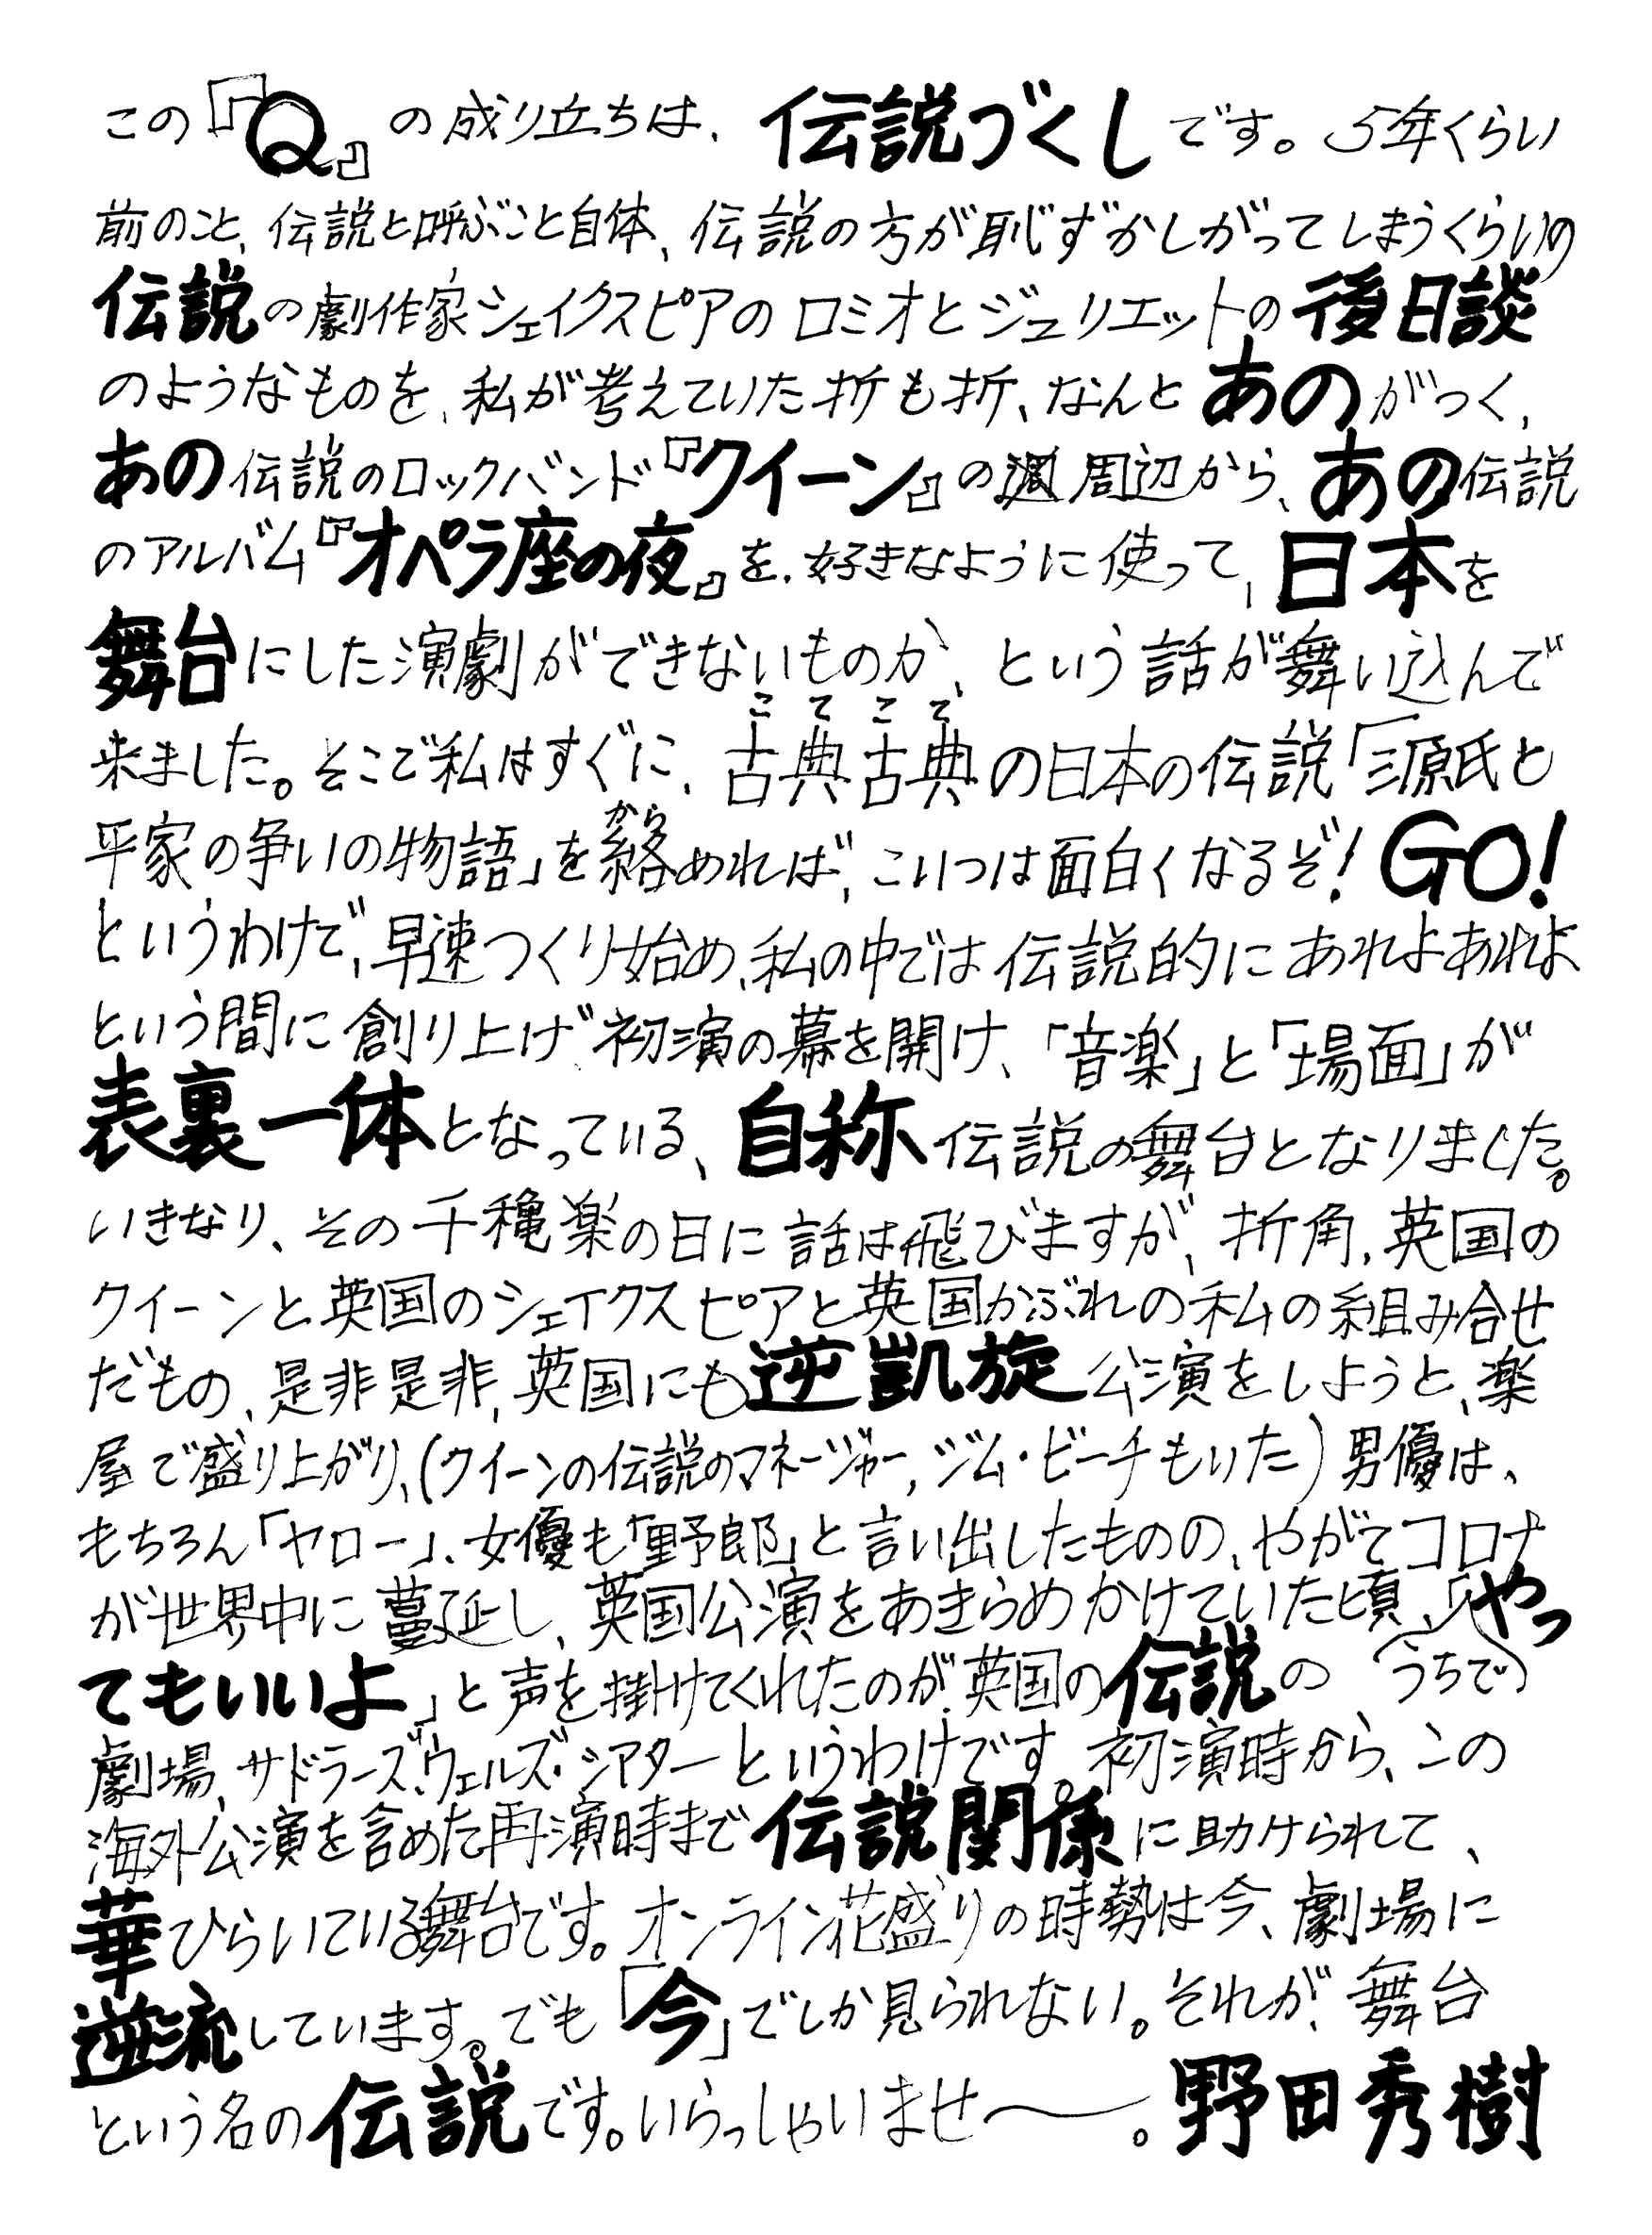 この『Q』の成り立ちは、伝説づくしです。5年くらい
前のこと、伝説と呼ぶこと自体、伝説の方が恥ずかしがってしまうくらいの
伝説の劇作家シェイクスピアのロミオとジュリエットの後日談
のようなものを、私が考えていた折も折、なんとあのがつく、
あの伝説のロックバンド『クイーン』の周辺から、あの伝説
のアルバム『オペラ座の夜』を、好きなように使って、日本を
舞台にした演劇ができないものか、という話が舞い込んで
こてこて
来ました。そこで私はすぐに、古典古典の日本の伝説「源氏と
から
平家の争いの物語」を絡めれば、こいつは面白くなるぞ！GO!
というわけで、早速つくり始め、私の中では伝説的にあれよあれよ
という間に創り上げ初演の幕を開け、「音楽」と「場面」が
表裏一体となっている、自称伝説の舞台となりました。
いきなり、その千穐楽の日に話は飛びますが、折角、英国の
クイーンと英国のシェイクスピアと英国かぶれの私の組み合せ
だもの、是非是非、英国にも逆凱旋公演をしようと、楽
屋で盛り上がり、(クイーンの伝説のマネージャー,ジム・ビーチもいた)男優は、
もちろん「ヤロー」、女優も「野郎」と言い出したものの、やがてコロナ
が世界中に蔓延し、英国公演をあきらめかけていた頃、「やっ
てもいいよ」と声を掛けてくれたのが、英国の伝説の
(うちで)
劇場、サドラーズ・ウェルズ・シアターというわけです。初演時から、この
海外公演を含めた再演時まで伝説関係に助けられて、
華ひらいている舞台です。オンライン花盛りの時勢は今、劇場に
逆流しています。でも「今」でしか見られない。それが、舞台
という名の伝説です。いらっしゃいませ〜。野田秀樹